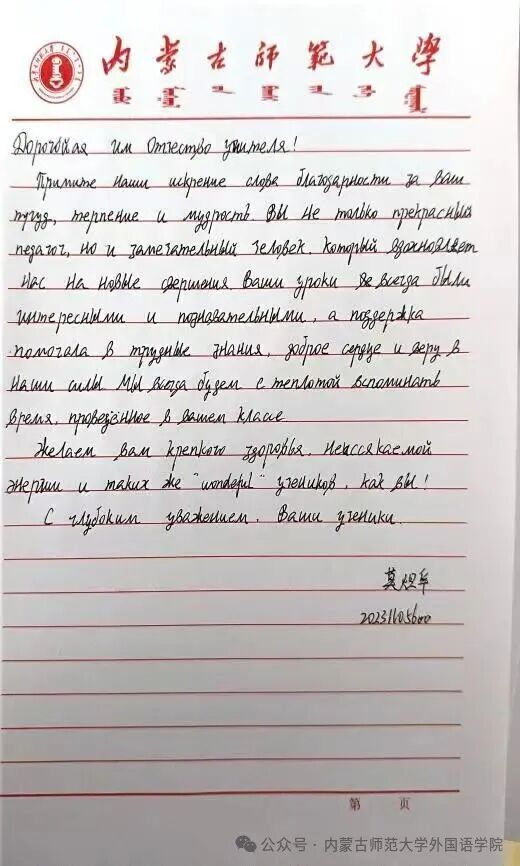 内蒙古师范大学
Дорогыйая им Отчество учителя!
Примите наши искрение слова благодарности за ваш
труд, терпение и мудрость. Вы не только прекрасный
педагог, но и замечательный человек. который вдохновляет
нас на новые свершения. Ваши уроки всегда были
интересными и познавательными, а поддержка
помогала в трудные знания, доброе сердце и веру в
наши силы. Мы всегда будем с теплотой вспоминать
время, проведённое в вашем классе
Желаем вам крепкого здоровья. неиссякаемой
энергии и таких же "wonderful" учеников, как вы!
С глубоким уважением. Ваши ученики.
第 页
公众号 · 内蒙古师范大学外国语学院